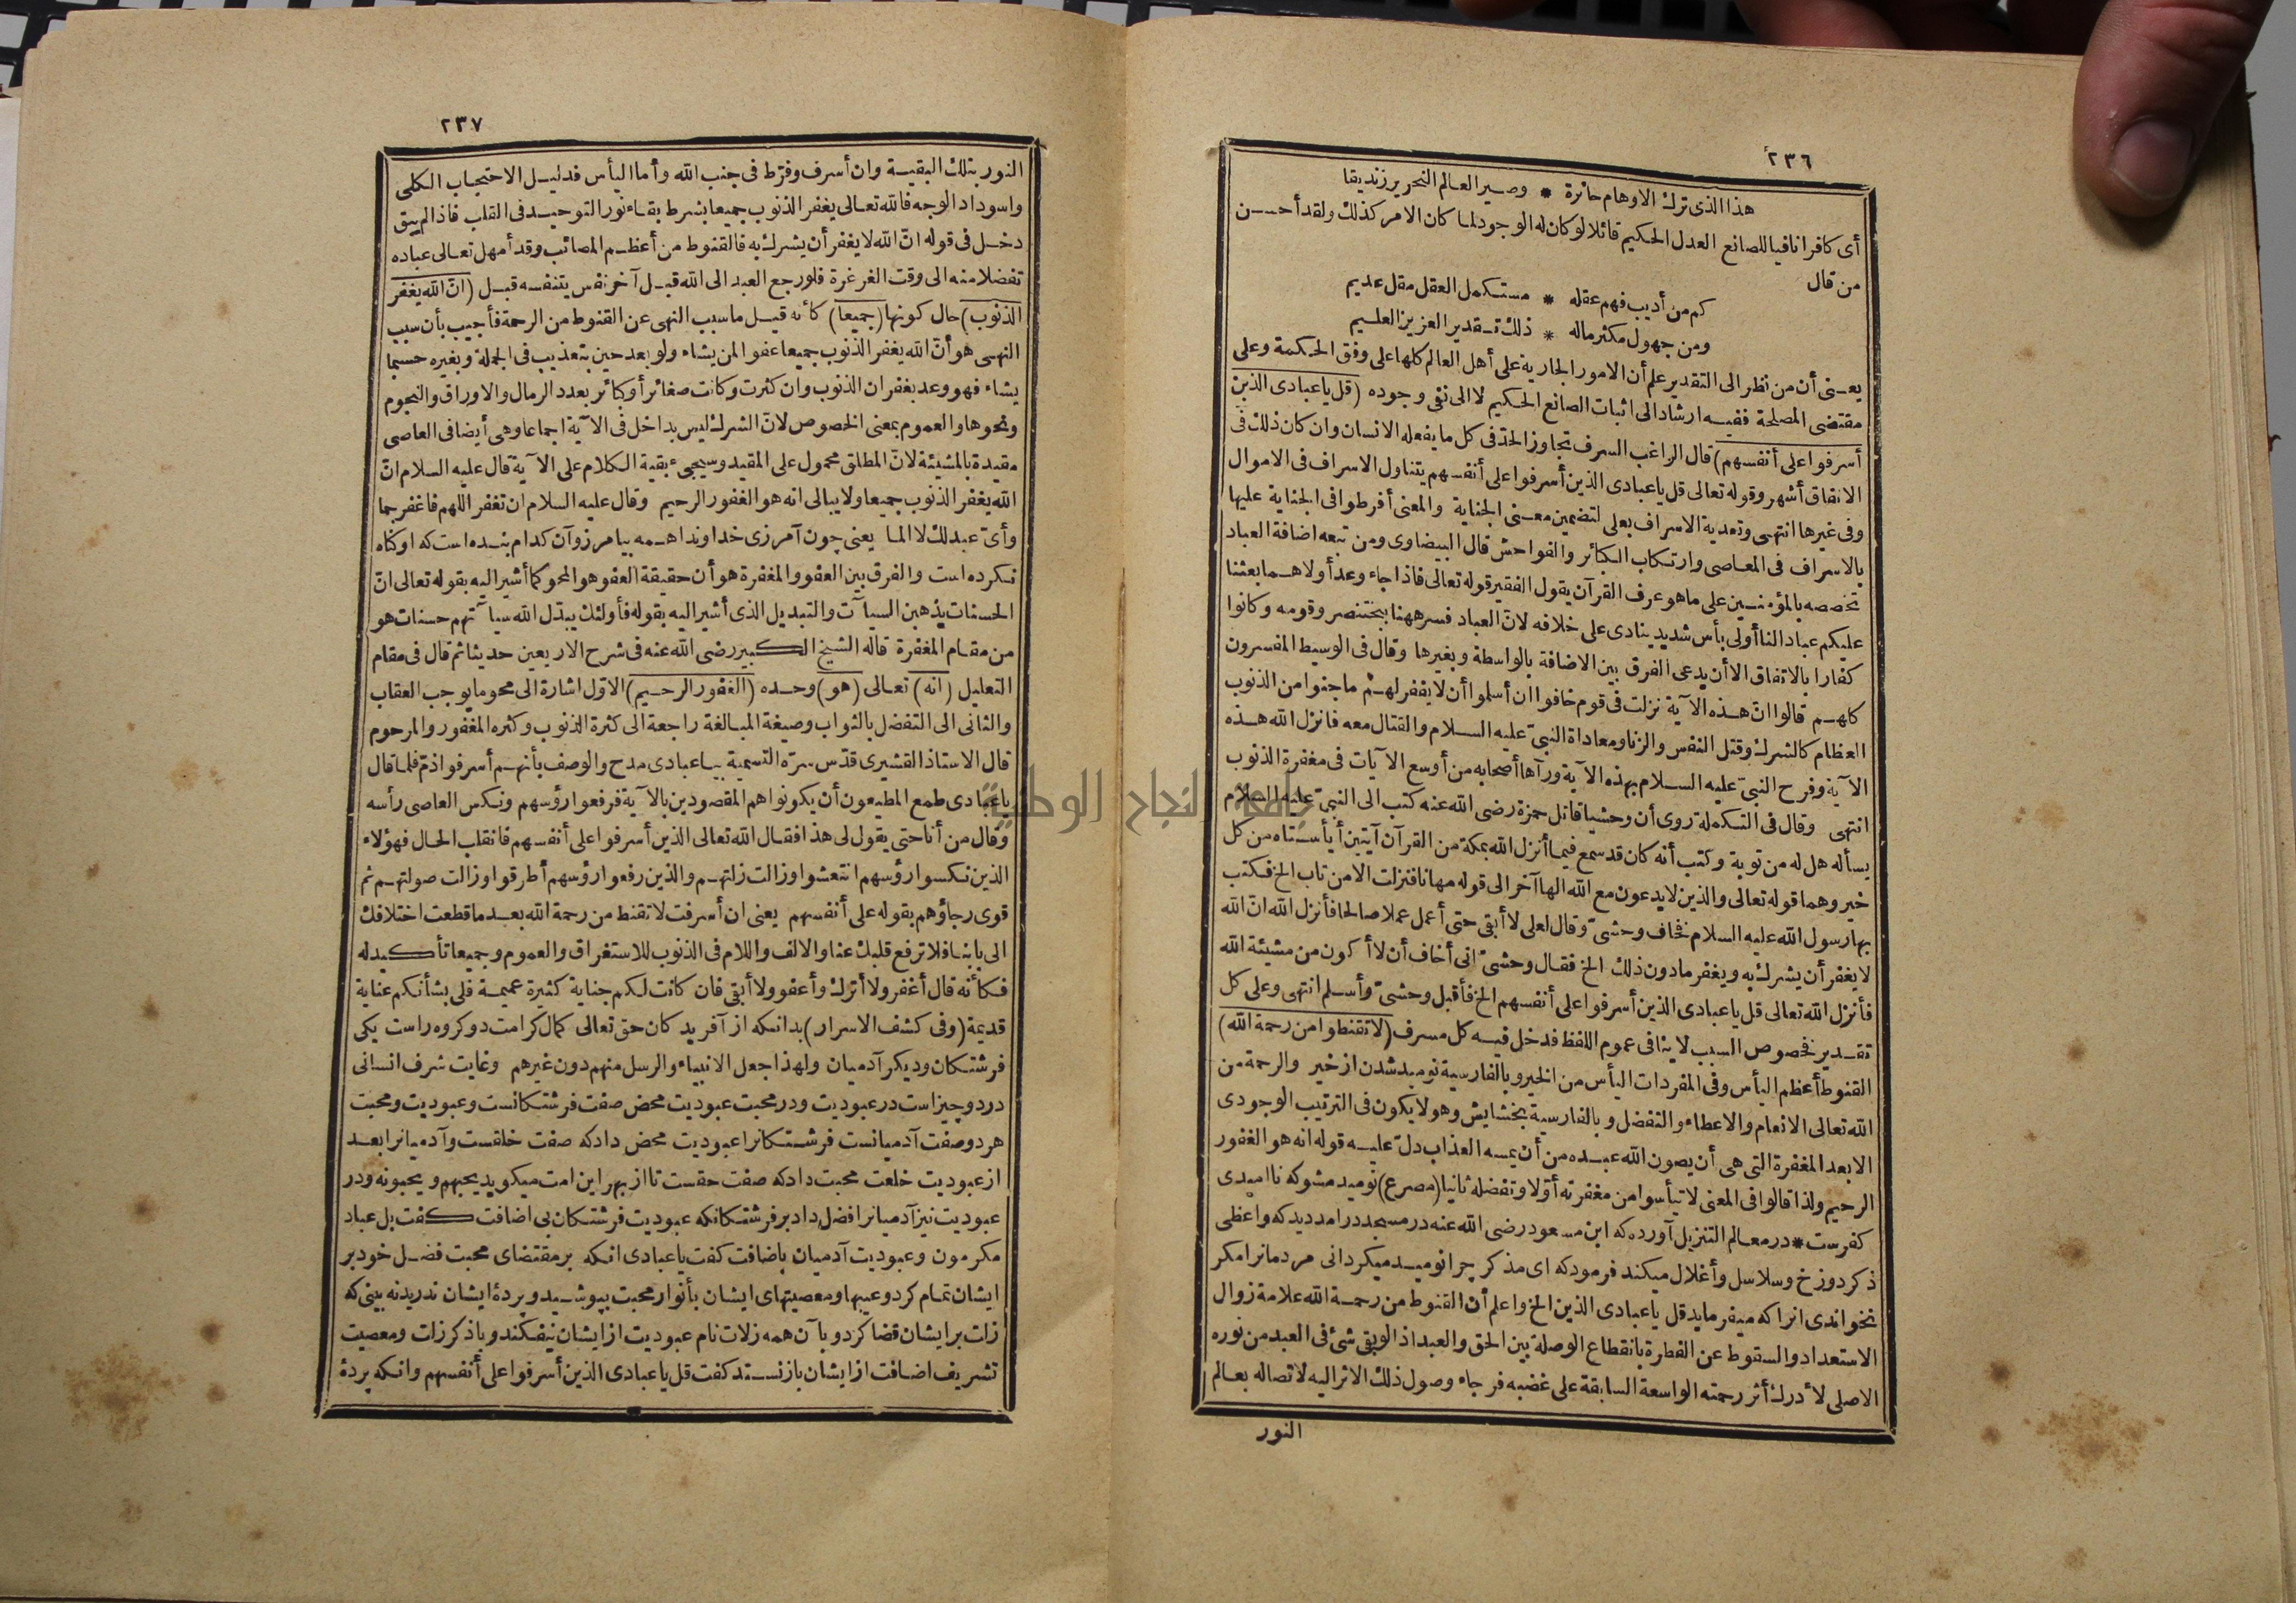 ٢٣٦
هذا الذى ترك الاوهام حائرة * وصير العالم النحرير زنديقا
أى كافرا نافيا للصانع العدل الحكيم قائلا لو كان له الوجود لما كان الامر كذلك ولقد أحسن
من قال
كم من أديب فهم عقله * مستكمل العقل مقل عديم
ومن جهول مكثر ماله * ذلك تقدير العزيز العليم
يعنى أن من نظر الى التقدير علم أن الامور الجارية على أهل العالم كلها على وفق الحكمة وعلى
مقتضى المصلحة ففيه ارشاد الى اثبات الصانع الحكيم لا الى نفى وجوده (قل يا عبادى الذين
أسرفوا على أنفسهم) قال الراغب السرف تجاوز الحدّ فى كل ما يفعله الانسان وان كان ذلك فى
الانفاق أشهر وقوله تعالى قل يا عبادى الذين أسرفوا على أنفسهم يتناول الاسراف فى الاموال
وفى غيرها انتهى وتعدية الاسراف بعلى لتضمين معنى الجناية والمعنى أفرطوا فى الجناية عليها
بالاسراف فى المعاصى وارتكاب الكبائر والفواحش قال البيضاوى ومن تبعه اضافة العباد
تخصصه بالمؤمنين على ما هو عرف القرآن يقول الفقير قوله تعالى فاذا جاء وعد أولاهما بعثنا
عليكم عبادا لنا أولى بأس شديد ينادى على خلافه لانّ العباد فسر ههنا ببختنصر وقومه وكانوا
كفارا بالاتفاق الا أن يدعى الفرق بين الاضافة بالواسطة وبغيرها وقال فى الوسيط المفسرون
كلهم قالوا انّ هذه الآية نزلت فى قوم خافوا ان أسلموا أن لا يغفر لهم ما جنوا من الذنوب
العظام كالشرك وقتل النفس والزنا ومعاداة النبىّ عليه السلام والقتال معه فانزل الله هذه
الآية وفرح النبىّ عليه السلام بهذه الآية ورآها أصحابه من أوسع الآيات فى مغفرة الذنوب
انتهى وقال فى التكملة روى أن وحشيا قاتل حمزة رضى الله عنه كتب الى النبىّ عليه السلام
يسأله هل له من توبة وكتب أنه كان قد سمع فيما أنزل الله بمكة من القرآن آيتين أيأستاه من كل
خير وهما قوله تعالى والذين لا يدعون مع الله الها آخر الى قوله مهانا فنزلت الا من تاب الخ فكتب
بها رسول الله عليه السلام فخاف وحشىّ وقال لعلى لا أبقى حتى أعمل عملا صالحا فأنزل الله انّ الله
لا يغفر أن يشرك به ويغفر ما دون ذلك الخ فقال وحشىّ انى أخاف أن لا أكون من مشيئة الله
فأنزل الله تعالى قل يا عبادى الذين أسرفوا على أنفسهم الخ فأقبل وحشىّ وأسلم انتهى وعلى كل
تقدير فخصوص السبب لا ينافى عموم اللفظ فدخل فيه كل مسرف (لا تقنطوا من رحمة الله)
القنوط أعظم اليأس وفى المفردات اليأس من الخير وبالفارسية نوميد شدن از خير والرحمة من
الله تعالى الانعام والاعطاء والتفضل وبالفارسية بخشايش وهو لا يكون فى الترتيب الوجودى
الا بعد المغفرة التى هى أن يصون الله عبده من أن يمسه العذاب دلّ عليه قوله انه هو الغفور
الرحيم ولذا قالوا فى المعنى لا تيأسوا من مغفرته أوّلا وتفضله ثانيا (مصرع) نوميد مشو كه نا اميدى
كفرست * در معالم التنزيل آورده كه ابن مسعود رضى الله عنه در مسجد در امد ديد كه واعظى
ذكر دوزخ وسلاسل وأغلال ميكند فرمود كه اى مذكر چرا نوميد ميكردانى مردمانرا مكر
نخواندى انرا كه ميفرمايد قل يا عبادى الذين الخ واعلم أن القنوط من رحمة الله علامة زوال
الاستعداد والسقوط عن الفطرة بانقطاع الوصلة بين الحق والعبد اذ لو بقى شئ فى العبد من نوره
الاصلى لأدرك أثر رحمته الواسعة السابقة على غضبه فرجاء وصول ذلك الاثر اليه لاتصاله بعالم
النور
٢٣٧
النور بتلك البقية وان أسرف وفرّط فى جنب الله وأما اليأس فدليل الاحتجاب الكلى
واسوداد الوجه فالله تعالى يغفر الذنوب جميعا بشرط بقاء نور التوحيد فى القلب فاذا لم يبق
دخل فى قوله انّ الله لا يغفر أن يشرك به فالقنوط من أعظم المصائب وقد أمهل تعالى عباده
تفضلا منه الى وقت الغرغرة فلو رجع العبد الى الله قبل آخر نفس يتنفسه قبل (انّ الله يغفر
الذنوب) حال كونها (جميعا) كأنه قيل ما سبب النهى عن القنوط من الرحمة فأجيب بأن سبب
النهى هو أنّ الله يغفر الذنوب جميعا عفوا لمن يشاء ولو بعد حين بتعذيب فى الجملة وبغيره حسبما
يشاء فهو وعد بغفران الذنوب وان كثرت وكانت صغائر أو كبائر بعدد الرمال والاوراق والنجوم
ونحوها والعموم بمعنى الخصوص لانّ الشرك ليس بداخل فى الآية اجماعا وهى أيضا فى العاصى
مقيدة بالمشيئة لانّ المطلق محمول على المقيد وسيجىء بقية الكلام على الآية قال عليه السلام انّ
الله يغفر الذنوب جميعا ولا يبالى انه هو الغفور الرحيم وقال عليه السلام ان تغفر اللهم فاغفر جما
وأىّ عبد لك لا ألما يعنى چون آمرزى خداوندا همه بيامرز وآن كدام بنده است كه او كناه
نكرده است والفرق بين العفو والمغفرة هو أن حقيقة العفو هو المحو كما أشير اليه بقوله تعالى انّ
الحسنات يذهبن السيآت والتبديل الذى أشير اليه بقوله فأولئك يبدّل الله سيآتهم حسنات هو
من مقام المغفرة قاله الشيخ الكبير رضى الله عنه فى شرح الاربعين حديثا ثم قال فى مقام
التعليل (انه) تعالى (هو) وحده (الغفور الرحيم) الاوّل اشارة الى محو ما يوجب العقاب
والثانى الى التفضل بالثواب وصيغة المبالغة راجعة الى كثرة الذنوب وكثره المغفور والمرحوم
قال الاستاذ القشيرى قدّس سرّه التسمية بيا عبادى مدح والوصف بأنهم أسرفوا ذمّ فلما قال
يا عبادى طمع المطيعون أن يكونوا هم المقصودين بالآية فرفعوا رؤسهم ونكس العاصى رأسه
وقال من أنا حتى يقول لى هذا فقال الله تعالى الذين أسرفوا على أنفسهم فانقلب الحال فهؤلاء
الذين نكسوا رؤسهم انتعشوا وزالت زلتهم والذين رفعوا رؤسهم أطرقوا وزالت صولتهم ثم
قوى رجاؤهم بقوله على أنفسهم يعنى ان أسرفت لا تقنط من رحمة الله بعد ما قطعت اختلافك
الى بابنا فلا ترفع قلبك عنا والالف واللام فى الذنوب للاستغراق والعموم وجميعا تأكيد له
فكأنه قال أغفر ولا أترك وأعفو ولا أبقى فان كانت لكم جناية كثيرة عميمة فلى بشأنكم عناية
قديمة (وفى كشف الاسرار) بدانكه از آفريدكان حق تعالى كمال كرامت دو كروه راست يكى
فرشتكان وديكر آدميان ولهذا جعل الانبياء والرسل منهم دون غيرهم وغايت شرف انسانى
در دو چيز است در عبوديت ودر محبت عبوديت محض صفت فرشتكانست وعبوديت ومحبت
هر دو صفت آدميانست فرشتكانرا عبوديت محض داد كه صفت خلقست وآدميانرا بعد
از عبوديت خلعت محبت داد كه صفت حقست تا از بهر اين امت ميكويد يحبهم ويحبونه ودر
عبوديت نيز آدميانرا افضل داد بر فرشتكانكه عبوديت فرشتكان بى اضافت كفت بل عباد
مكرمون وعبوديت آدميان باضافت كفت يا عبادى انكه بر مقتضاى محبت فضل خود بر
ايشان تمام كرد وعيبها ومعصيتهاى ايشان بأنوار محبت بپوشيد وپردهٔ ايشان ندريد نه بينى كه
زلت بر ايشان قضا كرد وبا آن همه زلات نام عبوديت از ايشان نيفكند وبا ذكر زلت ومعصيت
تشريف اضافت از ايشان باز نستد كفت قل يا عبادى الذين أسرفوا على أنفسهم وانكه پردهٔ
جامعة النجاح الوطنية